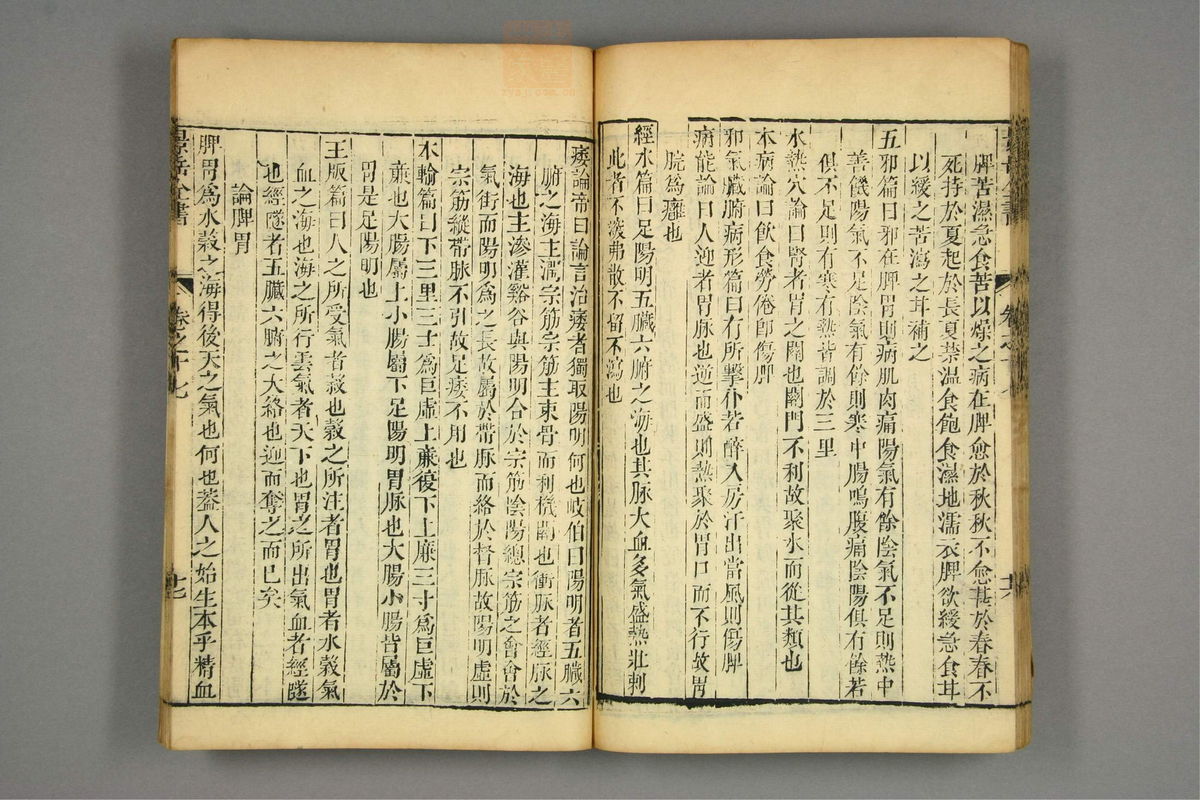 脾苦濕急食苦以燥之病在脾愈於秋秋不愈甚於春春不
死持於夏起於長夏禁温食飽食濕地濡衣脾欲緩急食甘
以緩之苦瀉之甘補之
五邪篇曰邪在脾胃則病肌肉痛陽氣有餘陰氣不足則熱中
善饑陽氣不足陰氣有餘則寒中腸鳴腹痛陰陽俱有餘若
俱不足則有寒有熱皆調於三里
水熱穴論曰腎者胃之關也關門不利故聚水而從其類也
本病論曰飲食勞倦即傷脾
邪氣臟腑病形篇曰有所擊仆若醉入房汗出當風則傷脾
病能論曰人迎者胃脉也逆而盛則熱聚於胃口而不行故胃
脘為癰也
經水篇曰足陽明五臟六腑之海也其脉大血多氣盛熱壯刺
此者不深弗散不留不瀉也
痿論帝曰論言治痿者獨取陽明何也岐伯曰陽明者五臟六
腑之海主潤宗筋宗筋主束骨而利機關也衝脉者經脉之
海也主滲灌谿谷與陽明合於宗筋陰陽總宗筋之會會於
氣街而陽明為之長故屬於帶脉而絡於督脉故陽明虚則
宗筋縱帶脉不引故足痿不用也
本輸篇曰下三里三寸為巨虚上廉復下上廉三寸為巨虚下
廉也大腸屬上小腸屬下足陽明胃脉也大腸小腸皆屬於
胃是足陽明也
玉版篇曰人之所受氣者穀也穀之所注者胃也胃者水穀氣
血之海也海之所行雲氣者天下也胃之所出氣血者經隧
也經隧者五臟六腑之大絡也迎而奪之而已矣
論脾胃
脾胃為水穀之海得後天之氣也何也蓋人之始生本乎精血
景岳全書
卷之十七
十七